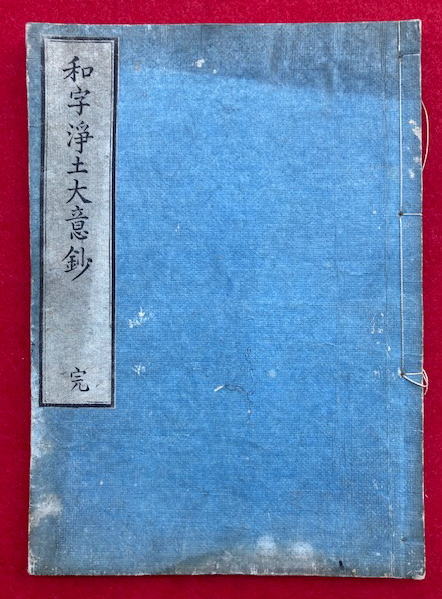 和字淨土大意鈔 完